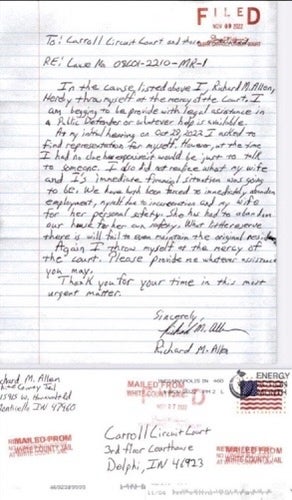 FILED
NOV 09 2022
To: Carroll Circuit Court and those
RE: Case No 08C01-2210-MR-1
In the cause listed above I, Richard M. Allen,
Hereby throw myself at the mercy of the Court. I
am begging to be provide with legal assistance in
a Public Defender or whatever help is available.
At my initial hearing on Oct 28, 2022 I asked to
find representation for myself. However, at the time
I had no clue how expensive it would be just to talk
to someone. I also did not realize what my wife
and I's immediate financial situation was going
to be. We have both been forced to immediately abandon
employment, myself due to incarceration and my wife
for her personal safety. She has had to abandon
our house for her own safety. What little reserve
there is will fail to even maintain the original
Again I throw myself at the mercy of
the court. Please provide me whatever assistance
you may.
Thank you for your time in this most
urgent matter.
Sincerely,
Richard M. Allen
Richard M. Allen
chard M. Allen
County Jail
Monticello, IN 47960
MAILED FROM
WHITE COUNTY JAIL
IN 460
ENERGY
Carroll Circuit Court
3rd floor Courthouse
Delphi, IN 46923
MAILED FROM
WHITE COUNTY JAIL
MAILED FROM
AT WHITE COUNTY JAIL